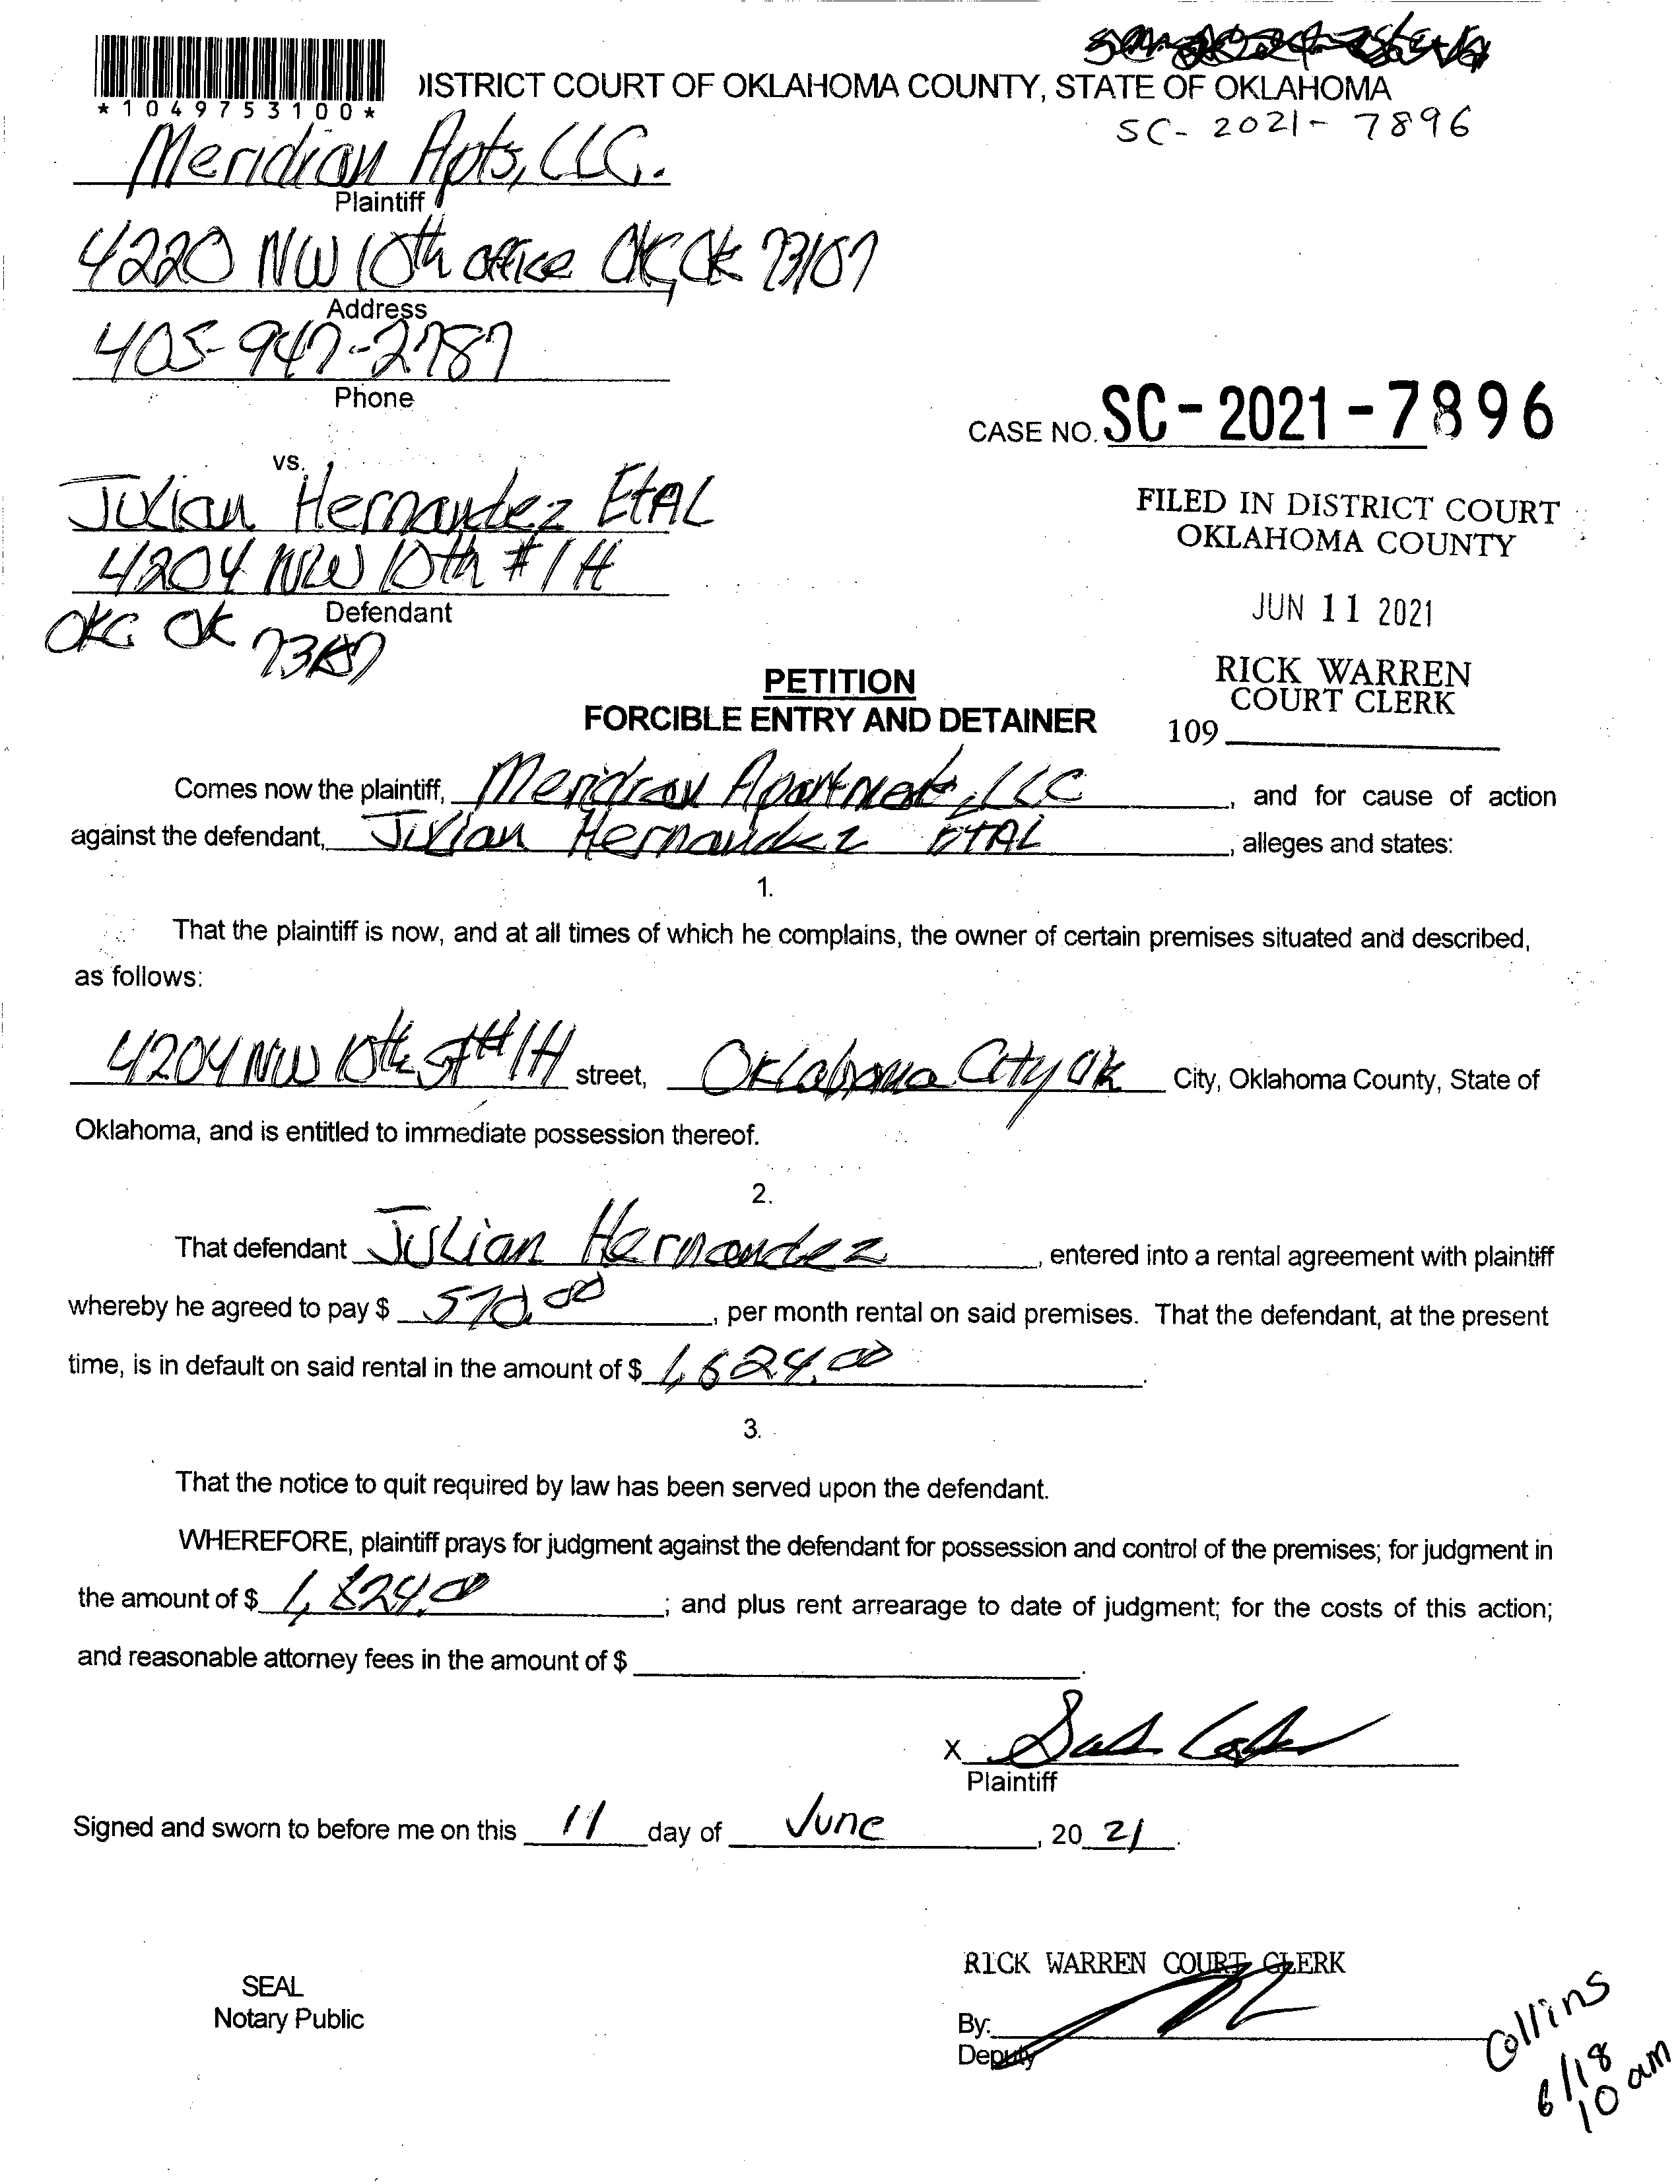 *1049753100*
DISTRICT COURT OF OKLAHOMA COUNTY, STATE OF OKLAHOMA
SC- 2021- 7896
Meridian Apts, LLC.
Plaintiff
4220 NW 10th office OKC, Ok 73107
Address
405-947-2787
Phone
CASE NO. SC-2021-7896
vs.
Julian Hernandez EtAL
4204 NW 10th #1H
Defendant
OKC OK 73107
FILED IN DISTRICT COURT
OKLAHOMA COUNTY
JUN 11 2021
RICK WARREN
COURT CLERK
109
PETITION
FORCIBLE ENTRY AND DETAINER
Comes now the plaintiff, Meridian Apartments, LLC, and for cause of action
against the defendant, Julian Hernandez ETAL, alleges and states:
1.
That the plaintiff is now, and at all times of which he complains, the owner of certain premises situated and described,
as follows:
4204 NW 10th St #1H street, Oklahoma City OK City, Oklahoma County, State of
Oklahoma, and is entitled to immediate possession thereof.
2.
That defendant Julian Hernandez, entered into a rental agreement with plaintiff
whereby he agreed to pay $ 570.00, per month rental on said premises. That the defendant, at the present
time, is in default on said rental in the amount of $
3.
That the notice to quit required by law has been served upon the defendant.
WHEREFORE, plaintiff prays for judgment against the defendant for possession and control of the premises; for judgment in
the amount of $ ; and plus rent arrearage to date of judgment; for the costs of this action;
and reasonable attorney fees in the amount of $
X
Plaintiff
Signed and sworn to before me on this 11 day of June, 20 21.
SEAL
Notary Public
RICK WARREN COURT CLERK
By:
Deputy
Collins
6/18
10 am